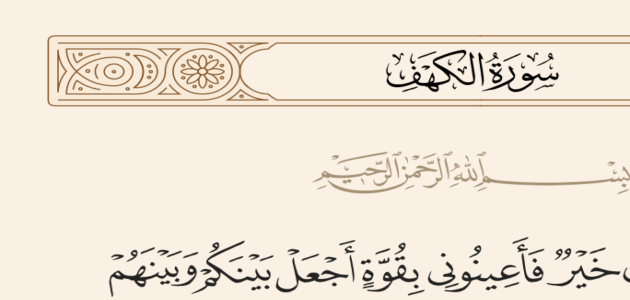 سُورَةُ الكَهْفِ
بِسْمِ اللَّهِ الرَّحْمَٰنِ الرَّحِيمِ
خَيْرٌ فَأَعِينُونِي بِقُوَّةٍ أَجْعَلْ بَيْنَكُمْ وَبَيْنَهُمْ